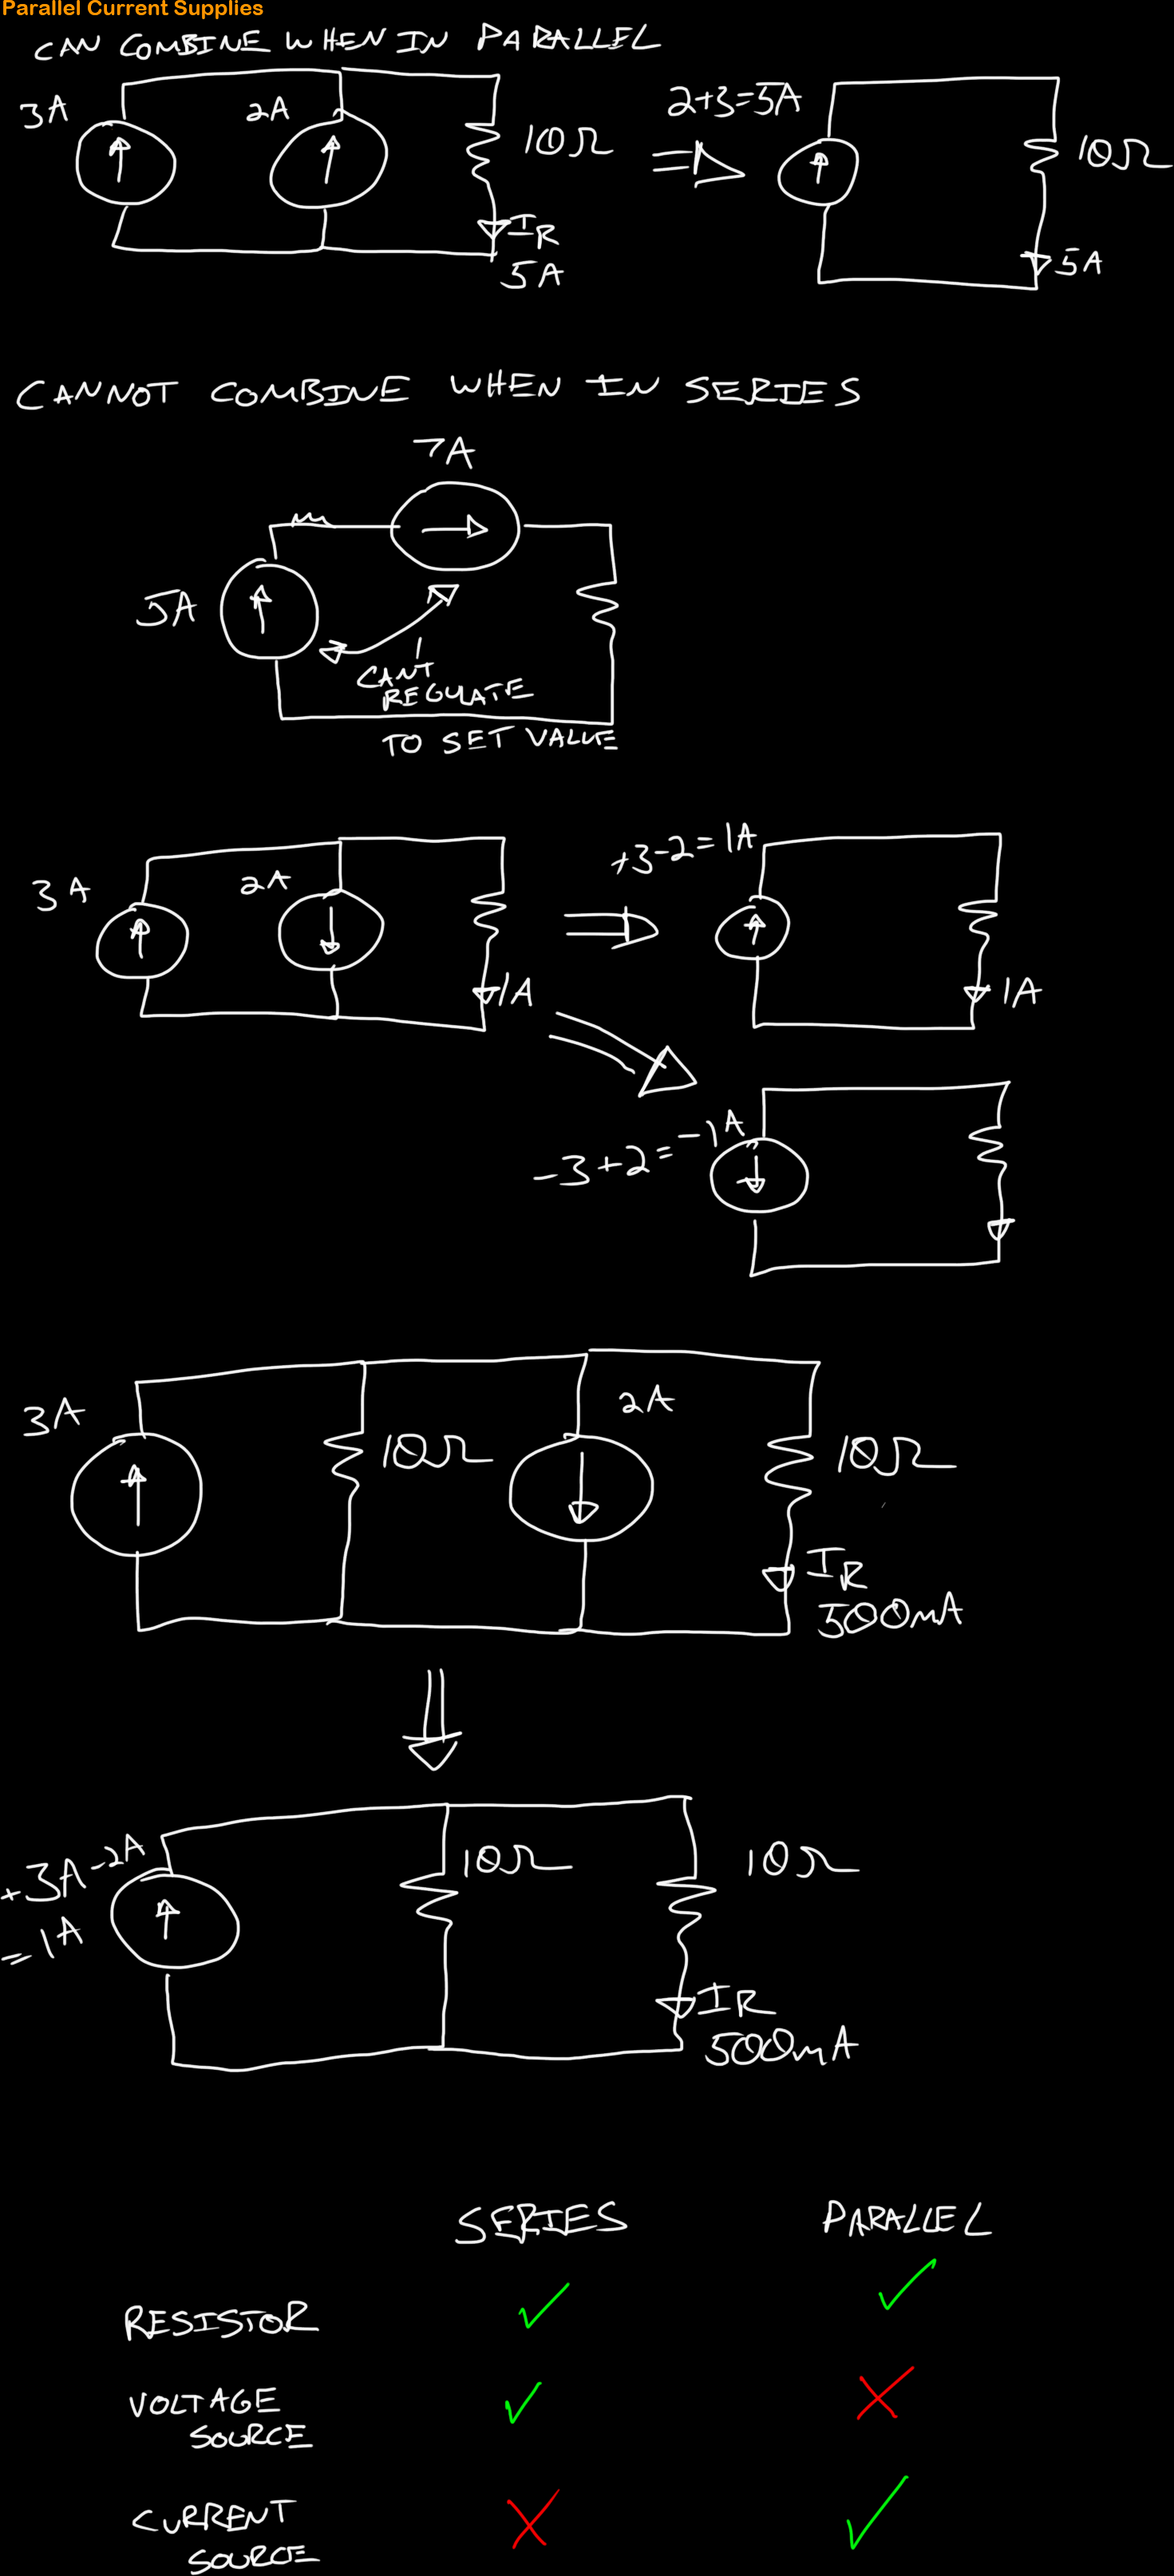 Parallel Current Supplies
CAN COMBINE WHEN IN PARALLEL
3A
2A
10Ω
IR
5A
2+3=5A
10Ω
5A
CANNOT COMBINE WHEN IN SERIES
7A
5A
CAN'T
REGULATE
TO SET VALUE
3A
2A
1A
+3-2=1A
1A
-3+2=-1A
3A
10Ω
2A
10Ω
IR
500mA
+3A-2A
=1A
10Ω
10Ω
IR
500mA
SERIES PARALLEL
RESISTOR ✓ ✓
VOLTAGE
SOURCE ✓ X
CURRENT
SOURCE X ✓